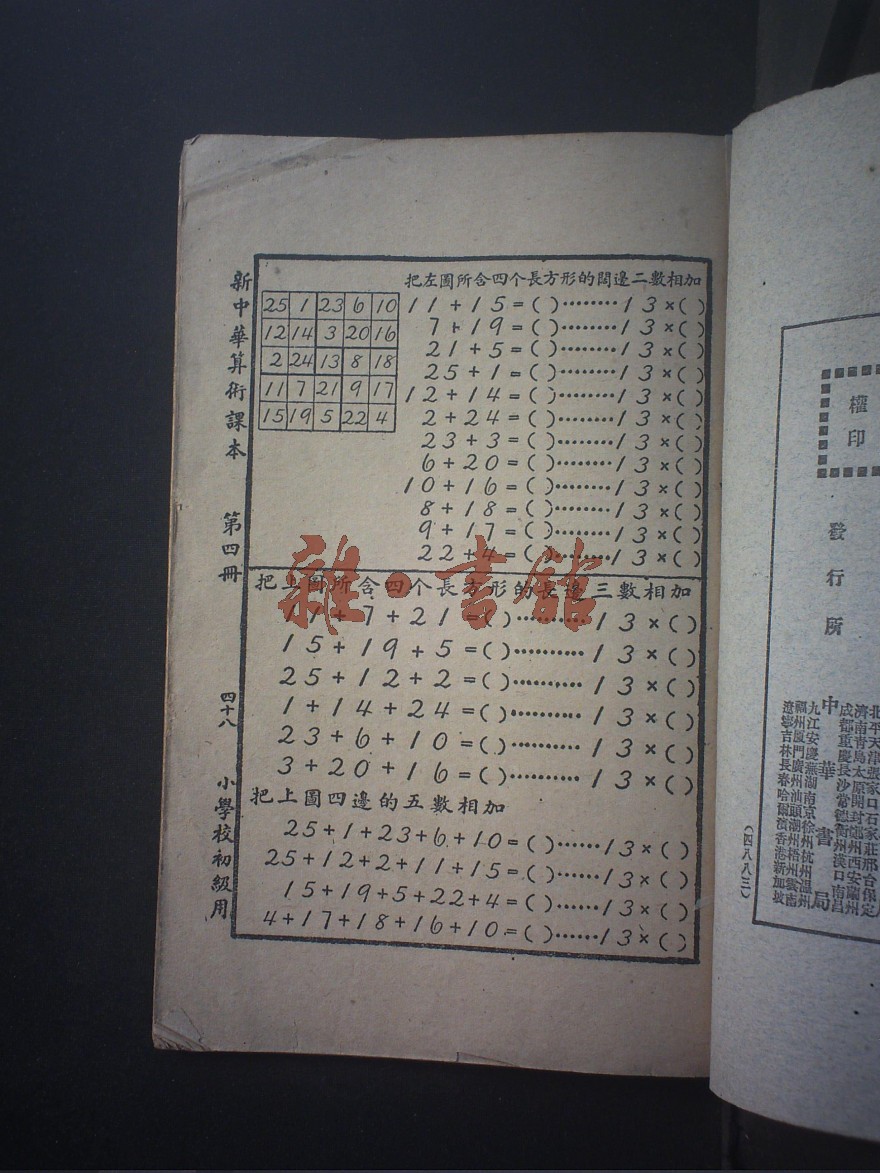 新中華算術課本 第四冊 四十八 小學校初級用
把左圖所含四个長方形的闊邊二數相加
25 1 23 6 10
12 14 3 20 16
2 24 13 8 18
11 7 21 9 17
15 19 5 22 4
11+15=( )········13×( )
7+19=( )········13×( )
21+5=( )········13×( )
25+1=( )········13×( )
12+14=( )········13×( )
2+24=( )········13×( )
23+3=( )········13×( )
6+20=( )········13×( )
10+16=( )········13×( )
8+18=( )········13×( )
9+17=( )········13×( )
22+4=( )········13×( )
把上圖所含四个長方形的長邊三數相加
11+7+21=( )··········13×( )
15+19+5=( )··········13×( )
25+12+2=( )··········13×( )
1+14+24=( )··········13×( )
23+6+10=( )··········13×( )
3+20+16=( )··········13×( )
把上圖四邊的五數相加
25+1+23+6+10=( )······13×( )
25+12+2+11+15=( )······13×( )
15+19+5+22+4=( )······13×( )
4+17+18+16+10=( )······13×( )
雜·書館
權
印
發行所
中華書局
北平天津張家口石家莊邢台保定
濟南青島太原開封鄭州西安蘭州
成都重慶長沙常德衡州漢口南昌
九江安慶蕪湖南京徐州杭州溫州
福州廈門廣州汕頭潮州梧州雲南
遼寧吉林長春哈爾濱香港新加坡
(四八八三)